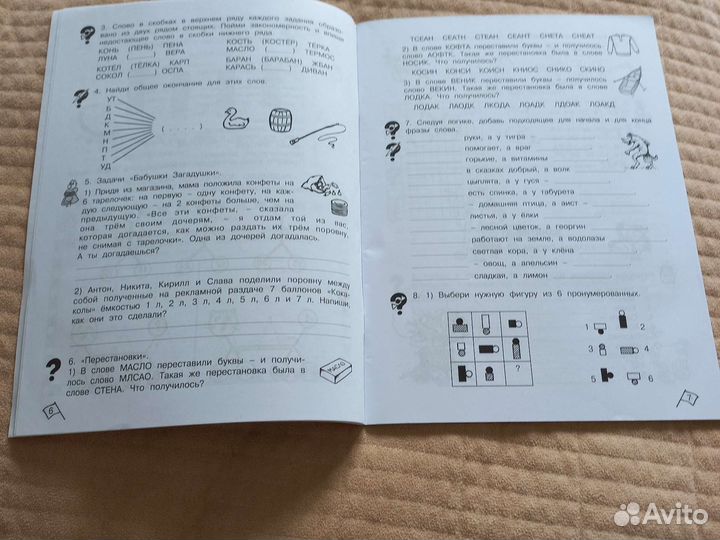 3. Слово в скобках в верхнем ряду каждого задания образо-
вано из двух рядом стоящих. Пойми закономерность и впиши
недостающее слово в скобки нижнего ряда.
КОНЬ (ПЕНЬ) ПЕНА КОСТЬ (КОСТЕР) ТЁРКА
ЛУНА ( ) ВЕРА МАСЛО ( ) ТЕРМОС
КОТЁЛ (ТЁЛКА) КАРП БАРАН (БАРАБАН) ЖБАН
СОКОЛ ( ) ОСПА КАРАСЬ ( ) ДИВАН
4. Найди общее окончание для этих слов.
УТ
Б
Д
К
М
Н
П
Т
УД
( . . . . )
5. Задачи «Бабушки Загадушки».
1) Придя из магазина, мама положила конфеты на
6 тарелочек: на первую – одну конфету, на каж-
дую следующую – на 2 конфеты больше, чем на
предыдущую. «Все эти конфеты, – сказала
она трём своим дочерям, – я отдам той из вас,
которая догадается, как можно раздать их трём поровну,
не снимая с тарелочки». Одна из дочерей догадалась.
А ты догадаешься?
2) Антон, Никита, Кирилл и Слава поделили поровну между
собой полученные на рекламной раздаче 7 баллонов «Кока-
колы» ёмкостью 1 л, 2 л, 3 л, 4 л, 5 л, 6 л и 7 л. Напиши,
как они это сделали?
6. «Перестановки».
1) В слове МАСЛО переставили буквы – и получи-
лось слово МЛСАО. Такая же перестановка была в
слове СТЕНА. Что получилось?
МАСЛО
6
ТСЕАН СЕАТН СТЕАН СЕАНТ СНЕТА СНЕАТ
2) В слове КОФТА переставили буквы – и получилось
слово АОФТК. Такая же перестановка была в слове
НОСИК. Что получилось?
КОСИН КОНСИ КОИСН КНИОС СНИКО СКИНО
3) В слове ВЕНИК переставили буквы – получилось
слово ВЕКИН. Такая же перестановка была в слове
ЛОДКА. Что получилось?
ЛОДАК ЛАОДК ЛКОДА ЛОАДК ЛДОАК ЛОАКД
7. Следуя логике, добавь подходящее для начала и для конца
фразы слова.
руки, а у тигра –
помогает, а враг
горькие, а витамины
в сказках добрый, а волк
цыплята, а у гуся –
есть спинка, а у табурета
– домашняя птица, а аист –
листья, а у ёлки
– лесной цветок, а георгин
работают на земле, а водолазы
светлая кора, а у клёна
– овощ, а апельсин –
сладкая, а лимон
8. 1) Выбери нужную фигуру из 6 пронумерованных.
?
1 2
3 4
5 6
7
Avito